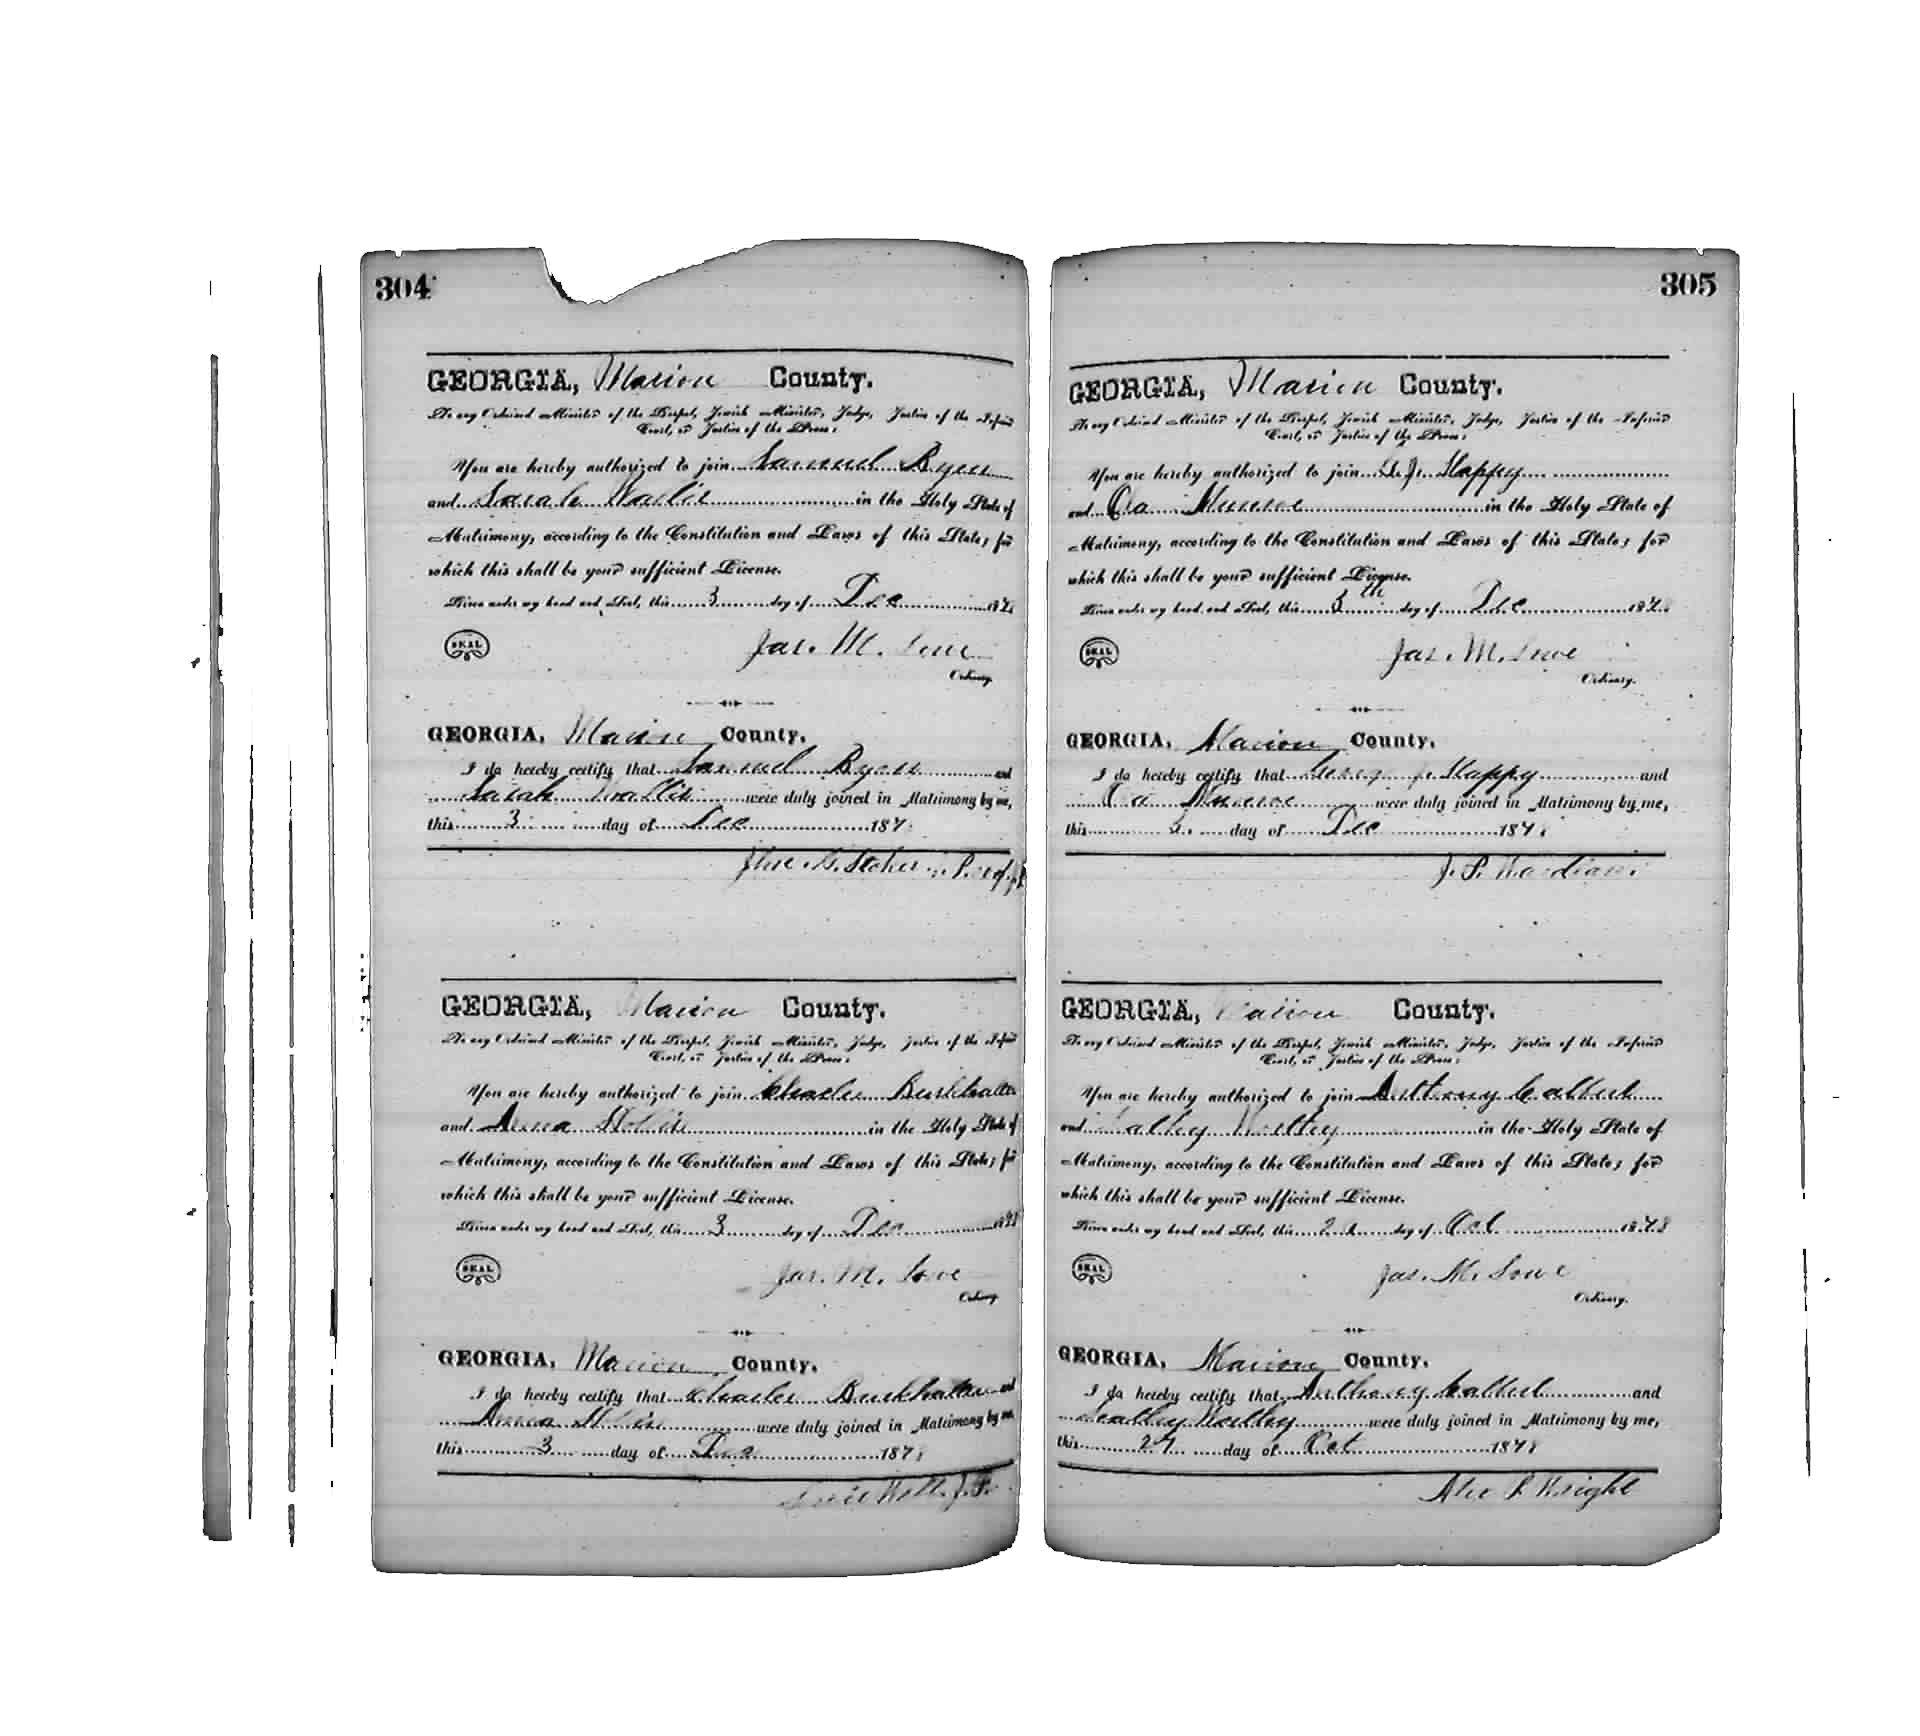 304
GEORGIA, Marion County.
To any Ordained Minister of the Gospel, Jewish Minister, Judge, Justice of the Inferior
Court, or Justice of the Peace:
You are hereby authorized to join Samuel Ryen
and Sarah Wallis in the Holy State of
Matrimony, according to the Constitution and Laws of this State; for
which this shall be your sufficient License.
Given under my hand and Seal, this 3 day of Dec 1878
SEAL
Jas. M. Lowe
Ordinary.
GEORGIA, Marion County.
I do hereby certify that Samuel Ryen and
Sarah Wallis were duly joined in Matrimony by me,
this 3 day of Dec 187
Stokes
GEORGIA, Marion County.
To any Ordained Minister of the Gospel, Jewish Minister, Judge, Justice of the Inferior
Court, or Justice of the Peace:
You are hereby authorized to join Charles Burkhalter
and in the Holy State of
Matrimony, according to the Constitution and Laws of this State; for
which this shall be your sufficient License.
Given under my hand and Seal, this 3 day of Dec 1878
SEAL
Jas. M. Lowe
Ordinary.
GEORGIA, Marion County.
I do hereby certify that Charles Burkhalter and
were duly joined in Matrimony by me,
this 3 day of Dec 1878
J.P.
305
GEORGIA, Marion County.
To any Ordained Minister of the Gospel, Jewish Minister, Judge, Justice of the Inferior
Court, or Justice of the Peace:
You are hereby authorized to join G. J. Happy
and Munroe in the Holy State of
Matrimony, according to the Constitution and Laws of this State; for
which this shall be your sufficient License.
Given under my hand and Seal, this 5th day of Dec 1878
SEAL
Jas. M. Lowe
Ordinary.
GEORGIA, Marion County.
I do hereby certify that George J. Happy and
Munroe were duly joined in Matrimony by me,
this day of Dec 1878
J. P.
GEORGIA, Marion County.
To any Ordained Minister of the Gospel, Jewish Minister, Judge, Justice of the Inferior
Court, or Justice of the Peace:
You are hereby authorized to join Anthony Calbert
and in the Holy State of
Matrimony, according to the Constitution and Laws of this State; for
which this shall be your sufficient License.
Given under my hand and Seal, this day of Oct 1878
SEAL
Jas. M. Lowe
Ordinary.
GEORGIA, Marion County.
I do hereby certify that Anthony Calbert and
were duly joined in Matrimony by me,
this 27 day of Oct 1878
Wright